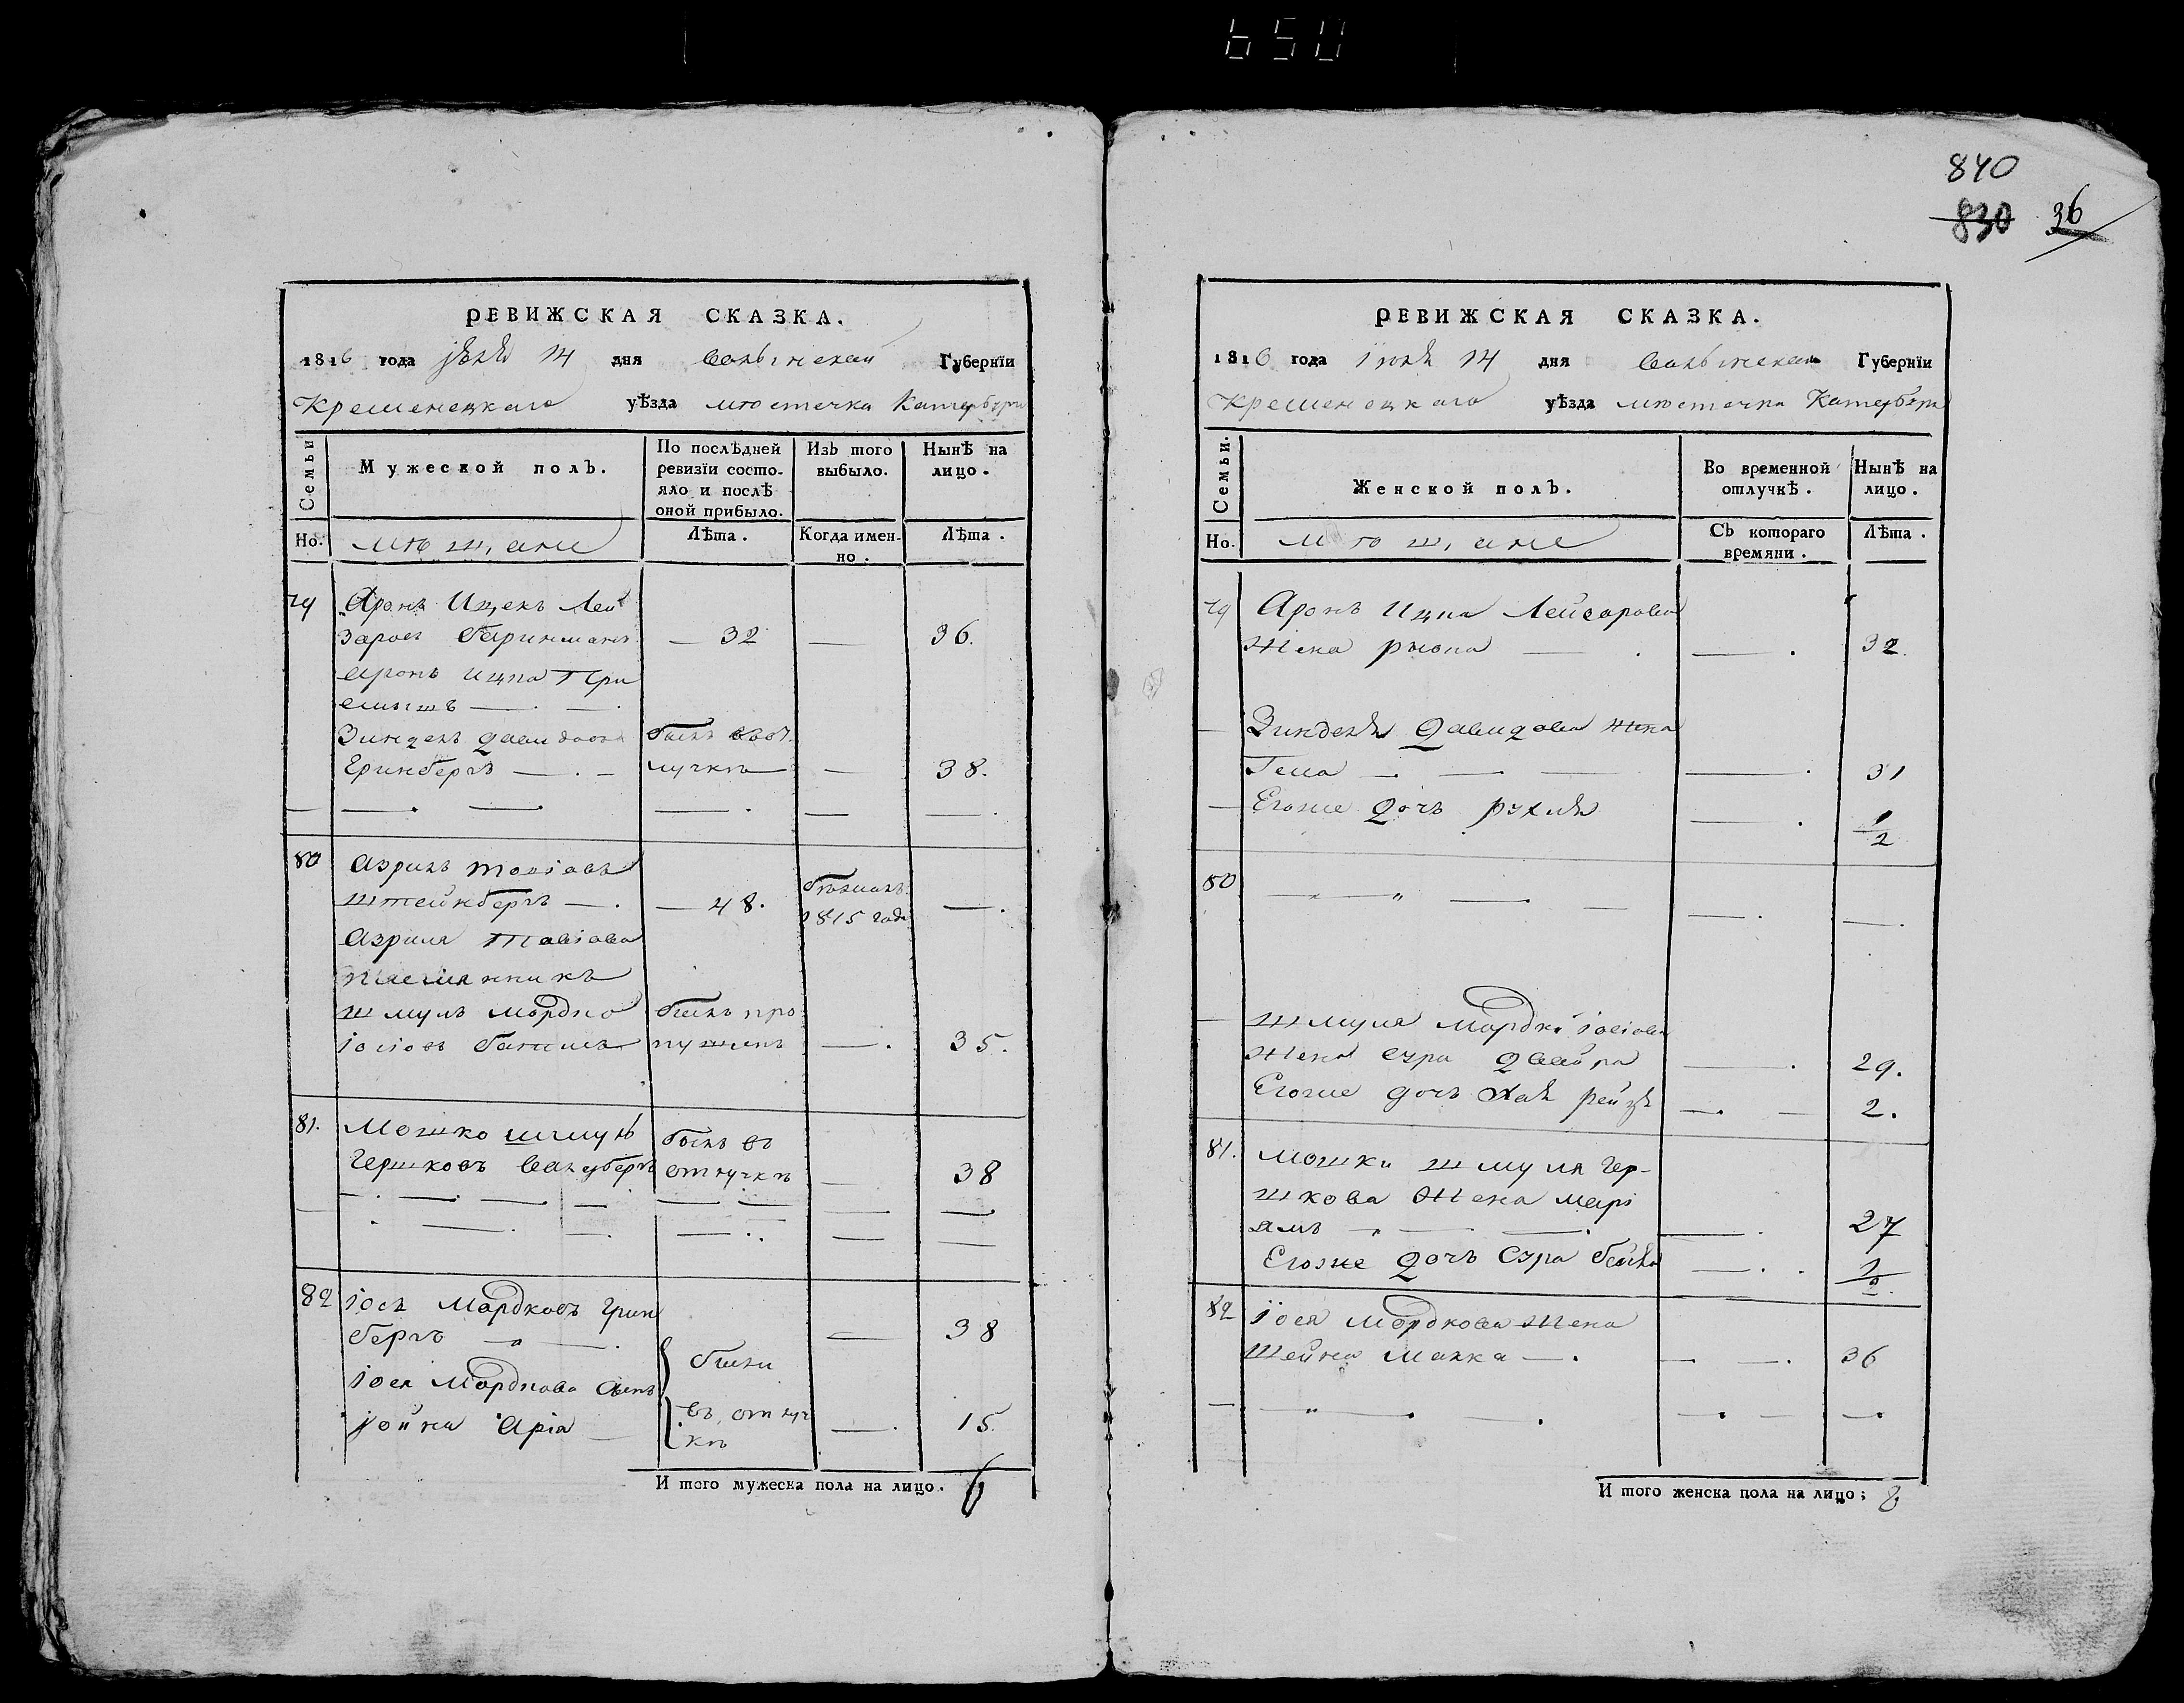 650
840
830 36
РЕВИЖСКАЯ СКАЗКА.
1816 года Іюня 14 дня Волынской Губернїи
Кременецкаго уѣзда мѣстечка Катербурга
Семьи
Мужеской полъ.
По послѣдней ревизїи состояло и послѣ оной прибыло.
Изъ того выбыло.
Нынѣ на лицо.
Но.
мѣщане
Лѣта.
Когда именно.
Лѣта.
79 Аронъ Ицекъ Лей
заровъ — 32 — 36.
Аронъ Ицка При
емышъ — . — .
Зинделъ Давидовъ былъ въ от
Гринбергъ — . — лучкѣ — 38.
80 Азрилъ Товіовъ
Штейнбергъ — . — 48. бѣжалъ 1815 года — .
Азриля Товіова
племянникъ
Шмулъ Мордко былъ про
пущенъ — . 35.
81. Мошко Шмуль былъ въ
Гершковъ отлучкѣ — 38
82 Іось Мордковъ Грин
бергъ — 38
Іося Мордкова сынъ были
Іойна Арія въ отлуч
кѣ — . 15.
И того мужеска пола на лицо. 6
РЕВИЖСКАЯ СКАЗКА.
1816 года Іюня 14 дня Волынской Губернїи
Кременецкаго уѣзда мѣстечка Катербурга
Семьи.
Женской полъ.
Во временной отлучкѣ.
Нынѣ на лицо.
Но.
мѣщане
Съ котораго времяни.
Лѣта.
79 Аронъ Ицка Лейзарова
жена Рывка — . — . 32.
Зинделя Давидова жена
— . — — . 31
Егоже дочь Рухля — . 1/2
80 — „ — — — . — .
Шмуля Мордки Іосіова
жена Сура Двейра — . 29.
Егоже дочь Хая Рейзя — . — 2.
81. Мошки Шмуля Гер-
шкова жена Марі
ямъ — . 27
Егоже дочь Сура Бейла — . . 1/2
82 Іося Мордкова жена
Шейна Малка — . — — . 36
— „ — . — . — . — — .
И того женска пола на лицо; 8